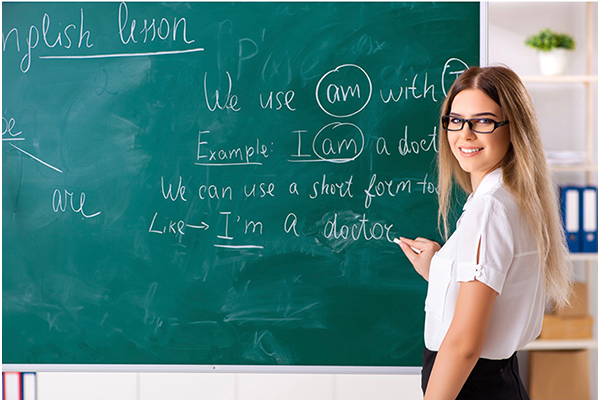 English lesson
We use am with I
Example: I am a doct
We can use a short form to
are
Like → I'm a doctor